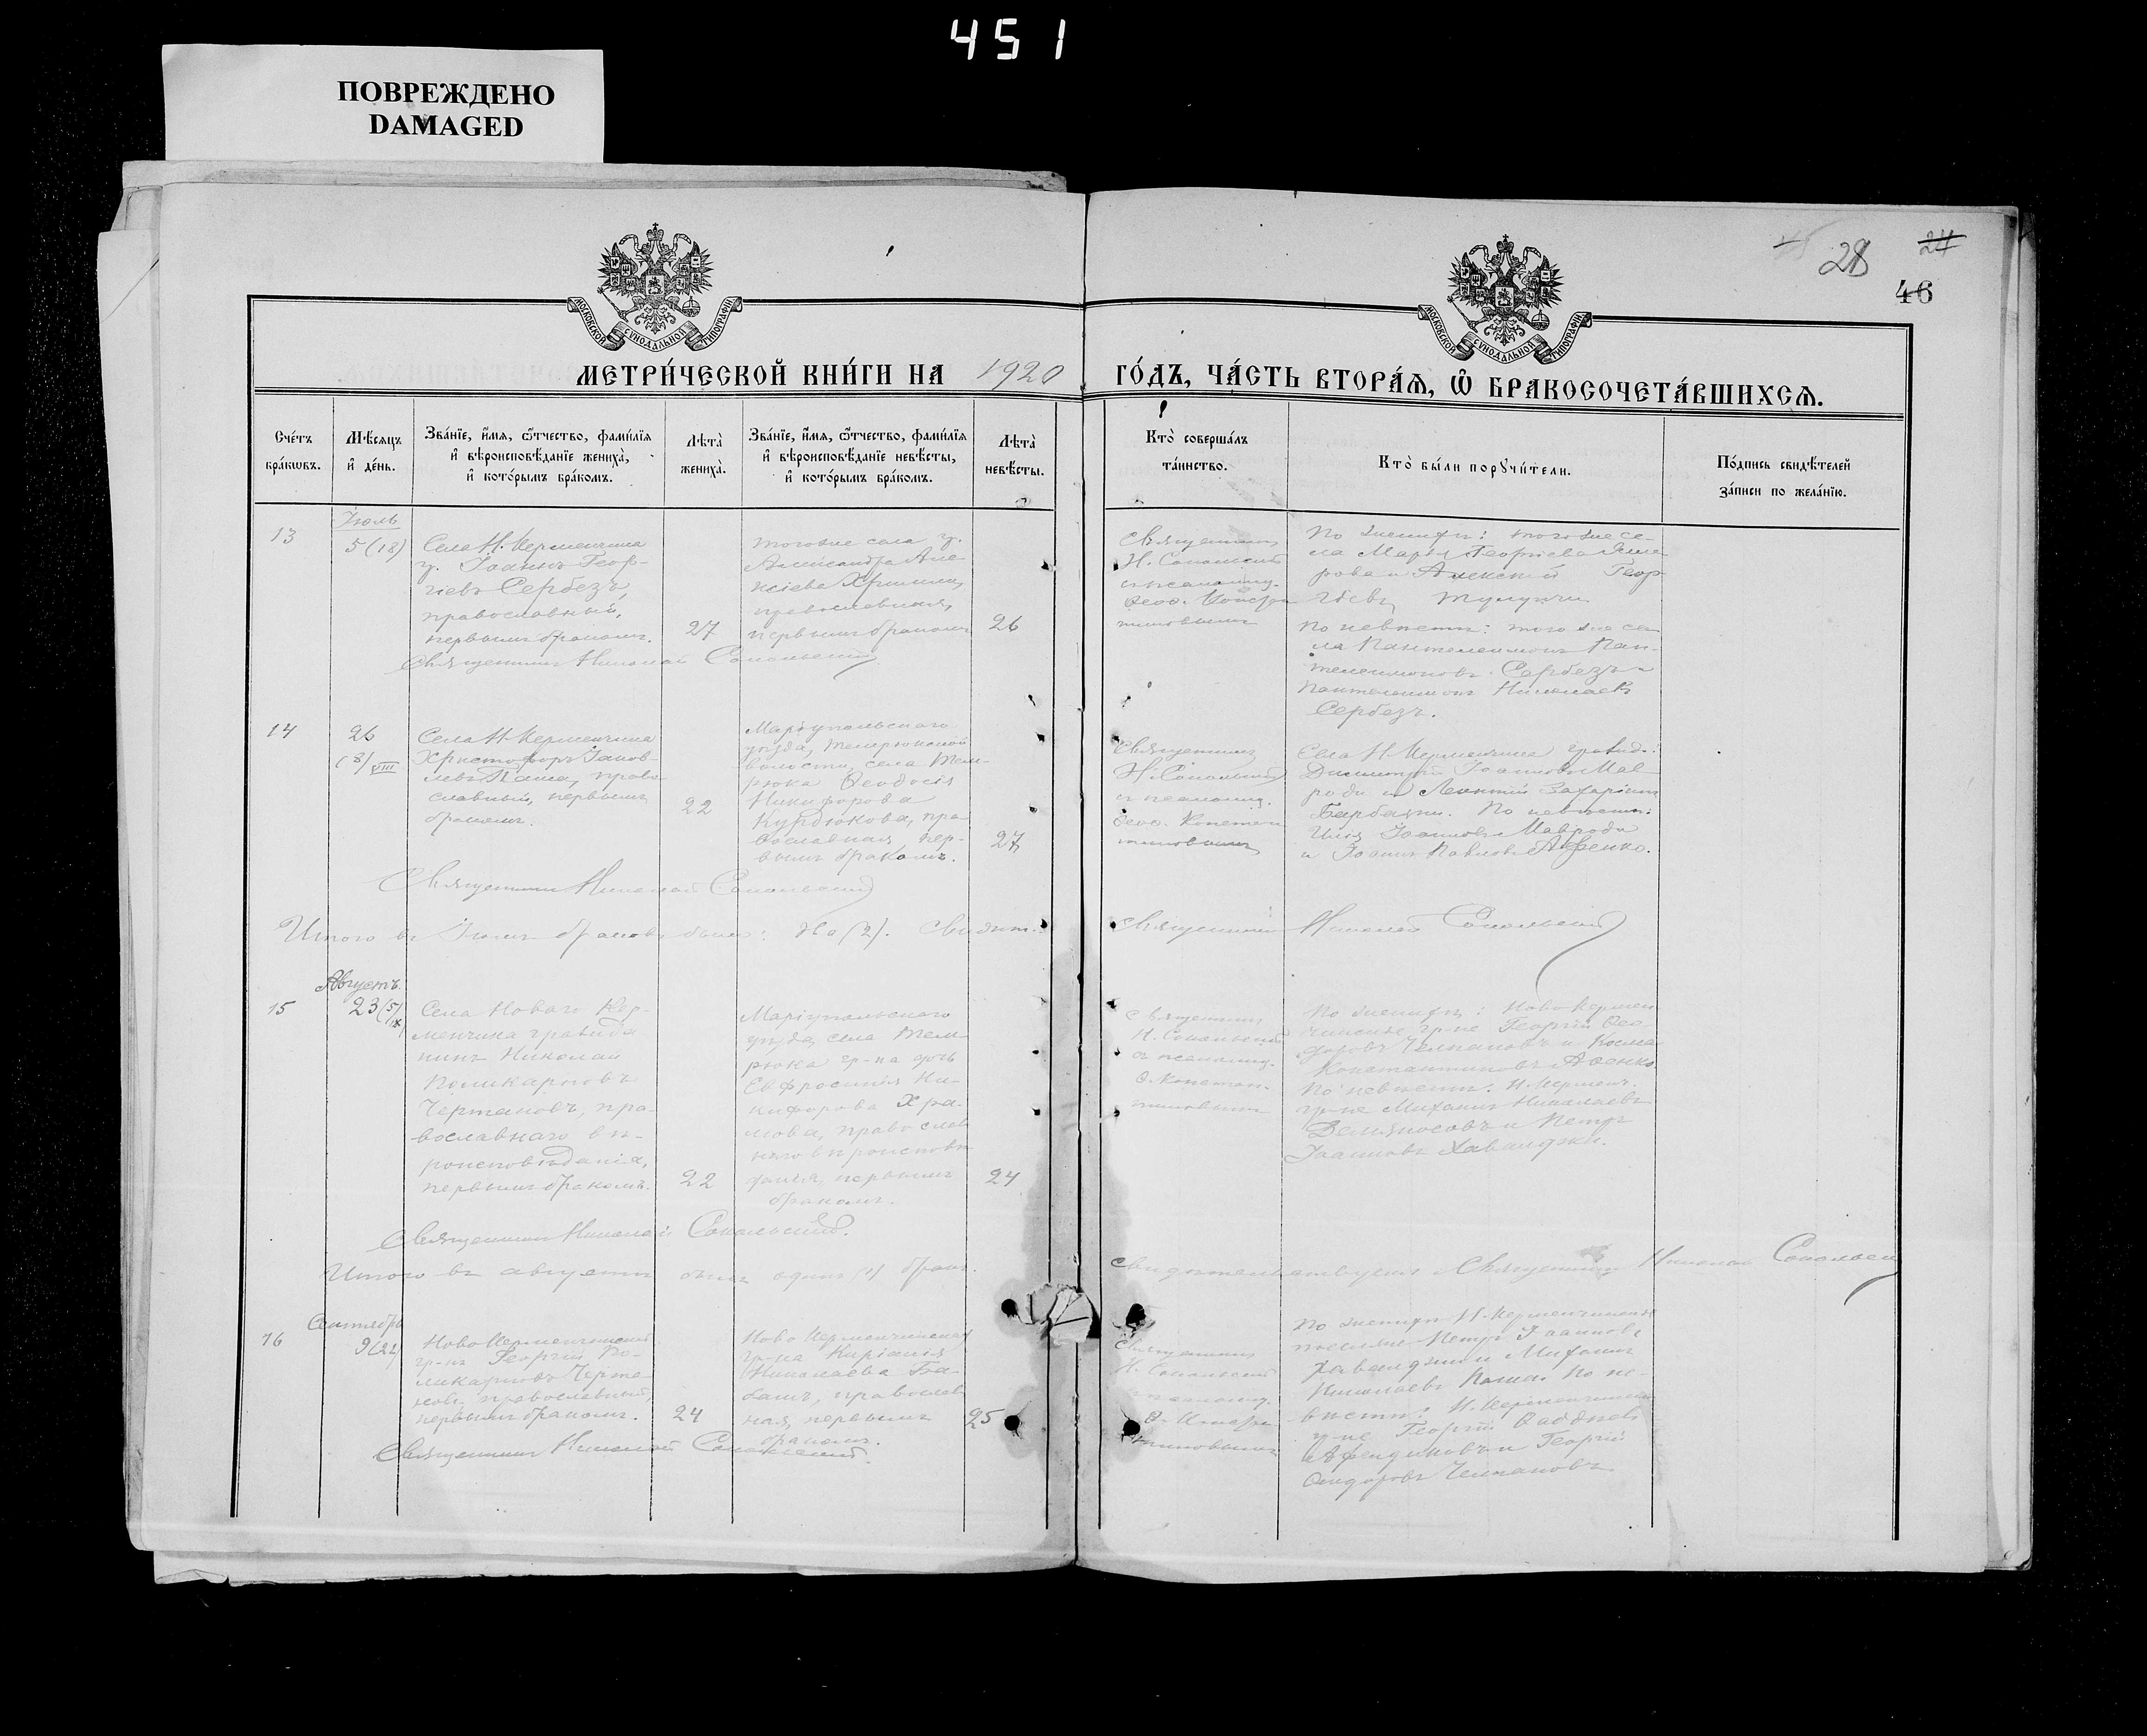 451
ПОВРЕЖДЕНО
DAMAGED
28
24
46
МОСКОВСКОЙ СѴНОДАЛЬНОЙ ТИПОГРАФІИ
МОСКОВСКОЙ СѴНОДАЛЬНОЙ ТИПОГРАФІИ
МЕТРИ́ЧЕСКОЙ КНИ́ГИ НА 1920 ГО́ДЪ, ЧА́СТЬ ВТОРА́Ѧ, Ѽ БРАКОСОЧЕТА́ВШИХСѦ.
Сче́тъ
бра́кѡвъ.
Мѣ́сѧцъ
и҆ де́нь.
Зва́нїе, и҆́мѧ, ѻ҆́тчество, фами́лїѧ
и҆ вѣроисповѣ́данїе жениха̀,
и҆ кото́рымъ бра́комъ.
Лѣта̀
жениха̀.
Зва́нїе, и҆́мѧ, ѻ҆́тчество, фами́лїѧ
и҆ вѣроисповѣ́данїе невѣ́сты,
и҆ кото́рымъ бра́комъ.
Лѣта̀
невѣ́сты.
Кто̀ соверша́лъ
та́инство.
Кто̀ бы́ли порꙋчи́тели.
По́дпись свидѣ́телей
за́писи по жела́нїю.
Іюль
13
5 (18)
Села Н. Керменчика
гр. Іоаннъ Геор-
гіевъ Сербезъ,
православный,
первымъ бракомъ.
27
тогоже села гр.
Александра Але-
ксіева
православная,
первымъ бракомъ
26
Священникъ
Н. Сокольскій
с псаломщ.
Ѳеод. Констан
тиновымъ
По женихѣ: того же се-
ла Георгіева
и Алексѣй Геор
гіевъ
По невѣстѣ: того же се
ла Пантелеимонъ Пан-
телеимоновъ Сербезъ и
Пантелеимонъ Николаевъ
Сербезъ.
Священникъ Николай Сокольскій
14
26
(8)/VIII
Села Н-Керменчика
Христофоръ Іаков-
левъ Паша, право-
славный, первымъ
бракомъ.
22
Маріупольскаго
уѣзда, Темрюкской
волости, села Тем-
рюка Ѳеодосія
Никифорова
Курдюкова, пра
вославная, пер-
вымъ бракомъ.
27
Священникъ
Н. Сокольскій
с псаломщ.
Ѳеод. Констан
тиновымъ
Села Н-Керменчика гражд.:
Димитрій Іоанновъ Мав
роди и Леонтій Захаріевъ
По невѣстѣ:
Илія Іоанновъ Мавроди
и Іоаннъ Павловъ
Священникъ Николай Сокольскій
Итого въ Іюлѣ браковъ было: два (2). Свидѣт.: Священникъ Николай Сокольскій
Августъ
15
23 (5/IX)
Села Новаго Кер-
менчика гражда
нинъ Николай
Поликарповъ
Чертановъ, пра-
вославнаго вѣ-
роисповѣданія,
первымъ бракомъ.
22
Маріупольскаго
уѣзда, села Тем-
рюка гр-на дочь
Евфросинія Ни-
кифорова Хра-
мова, православ
наго вѣроисповѣ
данія, первымъ
бракомъ.
24
Священникъ
Н. Сокольскій
с псаломщ.
Ѳ. Констан-
тиновымъ
По женихѣ: Ново Кермен
чикскіе гр-не Георгій Ѳео-
доровъ Челпановъ и Косма
Константиновъ
По невѣстѣ: Н. Керменч.
гр-не Михаилъ Николаевъ
и Петръ
Іоанновъ Хаваиджи.
Священникъ Николай Сокольскій.
Итого въ августѣ былъ одинъ (1) бракъ. Свидѣтельствуетъ Священникъ Николай Сокольскій
Сентябрь
16
9 (22)
Ново Керменчикскій
гр-нъ Георгій По-
ликарповъ Черта-
новъ, православный,
первымъ бракомъ.
24
Ново Керменчикская
гр-ка Киріакія
Николаева Ба-
башъ, православ
ная, первымъ
бракомъ.
25
Священникъ
Н. Сокольскій
с псаломщ.
Ѳ. Констан
тиновымъ
По женихѣ Н-Керменчикскіе
поселяне Петръ Іоанновъ
Хаваиджи и Михаилъ
Николаевъ Паша. По не-
вѣстѣ: Н. Керменчикскіе
гр-не Георгій
и Георгій
Ѳеодоровъ Челпановъ
Священникъ Николай Сокольскій.